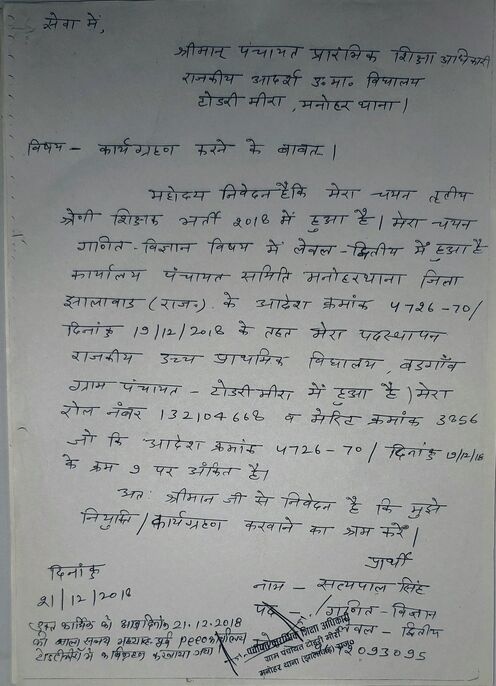 सेवा में,
श्रीमान् पंचायत प्रारंभिक शिक्षा अधिकारी
राजकीय आदर्श उ॰मा॰ विद्यालय
टोडरी मीरा, मनोहर थाना।
विषय - कार्यग्रहण करने के बाबत्।
महोदय निवेदन है कि मेरा चयन तृतीय
श्रेणी शिक्षक भर्ती 2018 में हुआ है। मेरा चयन
गणित - विज्ञान विषय में लेवल - द्वितीय में हुआ है
कार्यालय पंचायत समिति मनोहरथाना जिला
झालावाड़ (राज॰) के आदेश क्रमांक 4726-70/
दिनांक 19/12/2018 के तहत मेरा पदस्थापन
राजकीय उच्च प्राथमिक विद्यालय, बडगाँव
ग्राम पंचायत - टोडरीमीरा में हुआ है। मेरा
रोल नंबर 132104668 व मेरिट क्रमांक 3356
जो कि आदेश क्रमांक 4726-70/ दिनांक 19/12/18
के क्रम 9 पर अंकित है।
अतः श्रीमान जी से निवेदन है कि मुझे
नियुक्ति/कार्यग्रहण करवाने का श्रम करें।
दिनांक
21/12/2018
प्रार्थी
नाम - सत्यपाल सिंह
पद - /गणित - विज्ञान
लेवल - द्वितीय
उक्त कार्मिक को आज दिनांक 21.12.2018
को PEEO कार्यालय
टोडरीमीरा में कार्यग्रहण करवाया गया
पंचायत प्रारंभिक शिक्षा अधिकारी
ग्राम पंचायत टोडरी मीरा
मनोहर थाना (झालावाड़) राज॰